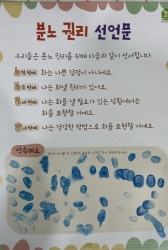 분노 권리 선언문
우리들은 분노 권리를 위해 다음과 같이 선서합니다.
첫번째 화는 나쁜 감정이 아니에요.
두번째 나는 화를 낼 권리가 있어요.
세번째 나는 화를 낼 필요가 있는 상황에서는
화를 표현할 거예요.
네번째 나는 건강한 방법으로 화를 표현할 거예요.
약속해요